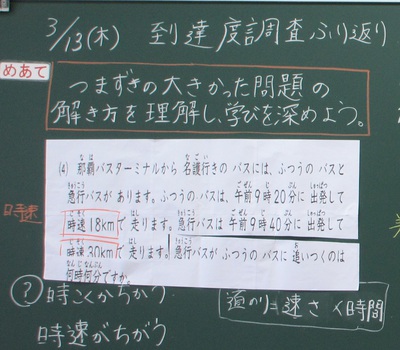 3/13(木) 到達度調査ふり返り
めあて
つまずきの大きかった問題の
解き方を理解し、学びを深めよう。
(4) 那覇バスターミナルから 名護行きの バスには、ふつうの バスと
急行バスが あります。ふつうの バスは、午前9時20分に 出発して
時速18kmで 走ります。急行バスは 午前9時40分に 出発して
時速30kmで 走ります。急行バスが ふつうの バスに 追いつくのは
何時何分ですか。
時速
? 時こくがちがう
時速がちがう
道のり=速さ×時間